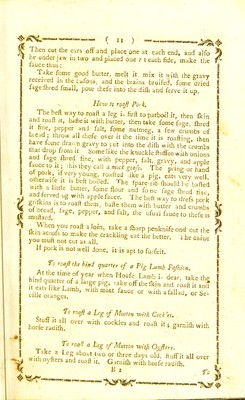 ( 11 )
Then cut the ears off and place one at each end, and also
the under jaw in two and placed one at each side, make the
sauce thus:
Take some good butter, melt it mix it with the gravy
received in the basons, and the brains bruised, some dried
sage shred small, pour these into the dish and serve it up.
How to roast Pork.
The best way to roast a leg is first to parboil it, then skin
and roast it, baste it with butter, then take some sage, shred
it fine, pepper and salt, some nutmeg, a few crumbs of
bread; throw all these over it the time it is roasting, then
have some drawn gravy to put into the dish with the crumbs
that drop from it Some like the knuckle stuffed with onions
and sage shred fine, with pepper, salt, gravy, and apple
sauce to it; this they call a mock goose. The spring or hand
of pork, if very young, roasted like a pig, eats very well,
otherwise it is best boiled. The spare-rib should be basted
with a little butter, some flour and some sage shred fine,
and served up with apple sauce. The best way to dress pork
griskins is to roast them, baste them with butter and crumbs
of bread, sage, pepper, and salt, the usual sauce to these is
mustard.
When you roast a loin, take a sharp penknife and cut the
skin across to make the crackling eat the better. The chine
you must not cut at all.
If pork is not well done, it is apt to surfeit.
To roast the hind quarter of a Pig Lamb Fashion.
At the time of year when House Lamb is dear, take the
hind quarter of a large pig, take off the skin and roast it and
it eats like Lamb, with mint sauce or with a sallad, or Se-
ville oranges.
To roast a Leg of Mutton with Cockles.
Stuff it all over with cockles and roast it; garnish with
horse radish.
To roast a Leg of Mutton with Oysters.
Take a Leg about two or three days old, stuff it all over
with oysters and roast it. Garnish with horse radish.
B 2
To